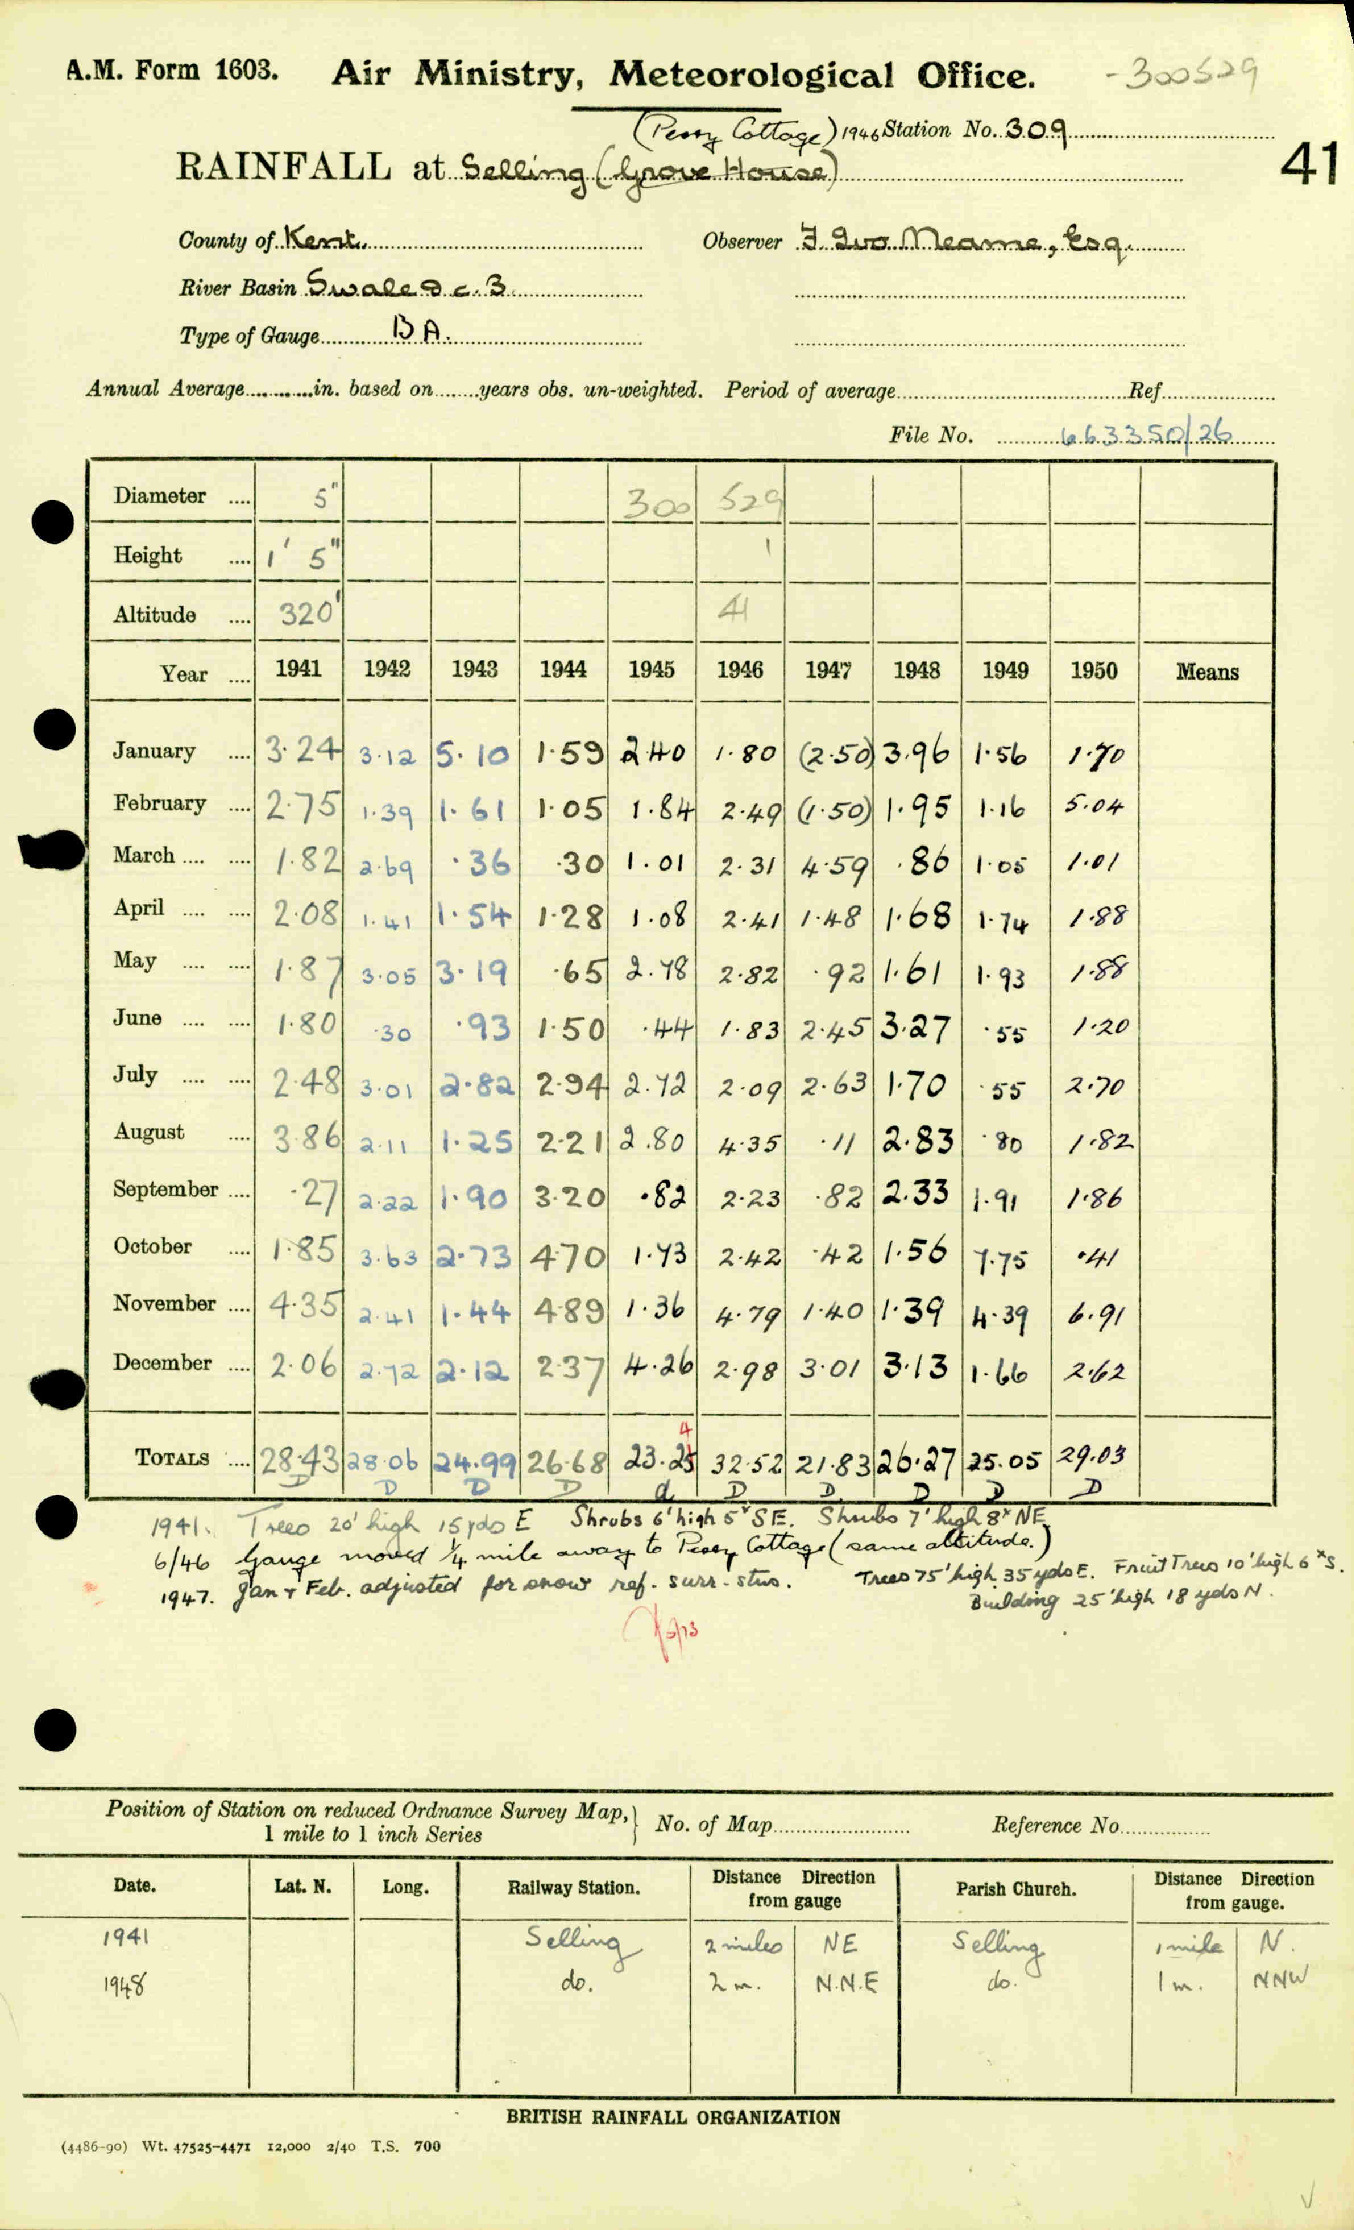 A.M. Form 1603. Air Ministry, Meteorological Office. -300529
(Perry Cottage) 1946 Station No. 309
41
RAINFALL at Selling (Grove House)
County of Kent. Observer F. Ivo Neame, Esq.
River Basin Swale D c. 3.
Type of Gauge BA.
Annual Average in. based on years obs. un-weighted. Period of average Ref.
File No. 663350/26
Diameter 5" 300 529
Height 1' 5" 1
Altitude 320' 41
Year 1941 1942 1943 1944 1945 1946 1947 1948 1949 1950 Means
January 3.24 3.12 5.10 1.59 2.40 1.80 (2.50) 3.96 1.56 1.70
February 2.75 1.39 1.61 1.05 1.84 2.49 (1.50) 1.95 1.16 5.04
March 1.82 2.69 .36 .30 1.01 2.31 4.59 .86 1.05 1.01
April 2.08 1.41 1.54 1.28 1.08 2.41 1.48 1.68 1.74 1.88
May 1.87 3.05 3.19 .65 2.78 2.82 .92 1.61 1.93 1.88
June 1.80 .30 .93 1.50 .44 1.83 2.45 3.27 .55 1.20
July 2.48 3.01 2.82 2.94 2.72 2.09 2.63 1.70 .55 2.70
August 3.86 2.11 1.25 2.21 2.80 4.35 .11 2.83 .80 1.82
September .27 2.22 1.90 3.20 .82 2.23 .82 2.33 1.91 1.86
October 1.85 3.63 2.73 4.70 1.73 2.42 .42 1.56 7.75 .41
November 4.35 2.41 1.44 4.89 1.36 4.79 1.40 1.39 4.39 6.91
December 2.06 2.72 2.12 2.37 4.26 2.98 3.01 3.13 1.66 2.62
4
TOTALS 28.43 28.06 24.99 26.68 23.25 32.52 21.83 26.27 25.05 29.03
D D D D d D D. D D D
1941. Trees 20' high 15 yds E Shrubs 6' high 5ˣ SE. Shrubs 7' high 8ˣ NE.
6/46 Gauge moved ¼ mile away to Perry Cottage (same altitude.)
1947. Jan & Feb. adjusted for snow ref. surr. stns. Trees 75' high 35 yds E. Fruit Trees 10' high 6ˣ S.
Building 25' high 18 yds N.
Position of Station on reduced Ordnance Survey Map,
1 mile to 1 inch Series No. of Map Reference No.
Date. Lat. N. Long. Railway Station. Distance Direction from gauge Parish Church. Distance Direction from gauge.
1941 Selling 2 miles NE Selling 1 mile N.
1948 do. 2 m. N.N.E do. 1 m. NNW
BRITISH RAINFALL ORGANIZATION
(4486-90) Wt. 47525-4471 12,000 2/40 T.S. 700